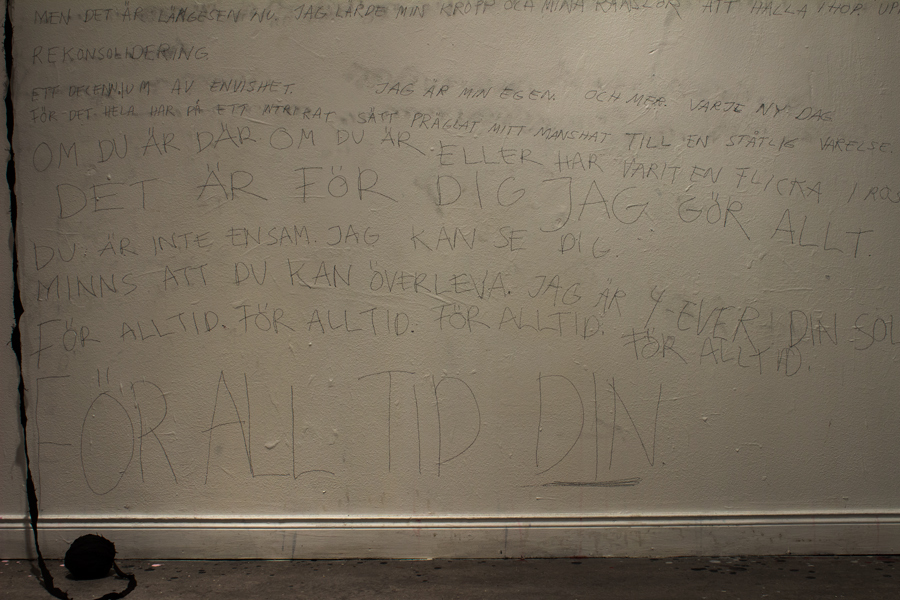 MEN DET ÄR LÄNGESEN NU. JAG LÄRDE MIN KROPP OCH MINA KÄNSLOR ATT HÅLLA IHOP.
REKONSOLIDERING.
ETT DECENNIUM AV ENVISHET. JAG ÄR MIN EGEN. OCH MER. VARJE NY DAG
FÖR DET HELA HAR PÅ ETT SÄTT PRÄGLAT MITT TILL EN STÅTLIG VARELSE.
OM DU ÄR DÄR OM DU ÄR ELLER HAR VARIT EN FLICKA I
DET ÄR FÖR DIG JAG GÖR ALLT.
DU ÄR INTE ENSAM. JAG KAN SE DIG.
MINNS ATT DU KAN ÖVERLEVA. JAG ÄR 4-EVER DIN
FÖR ALLTID. FÖR ALLTID. FÖR ALLTID. FÖR ALLTID.
FÖR ALL TID DIN